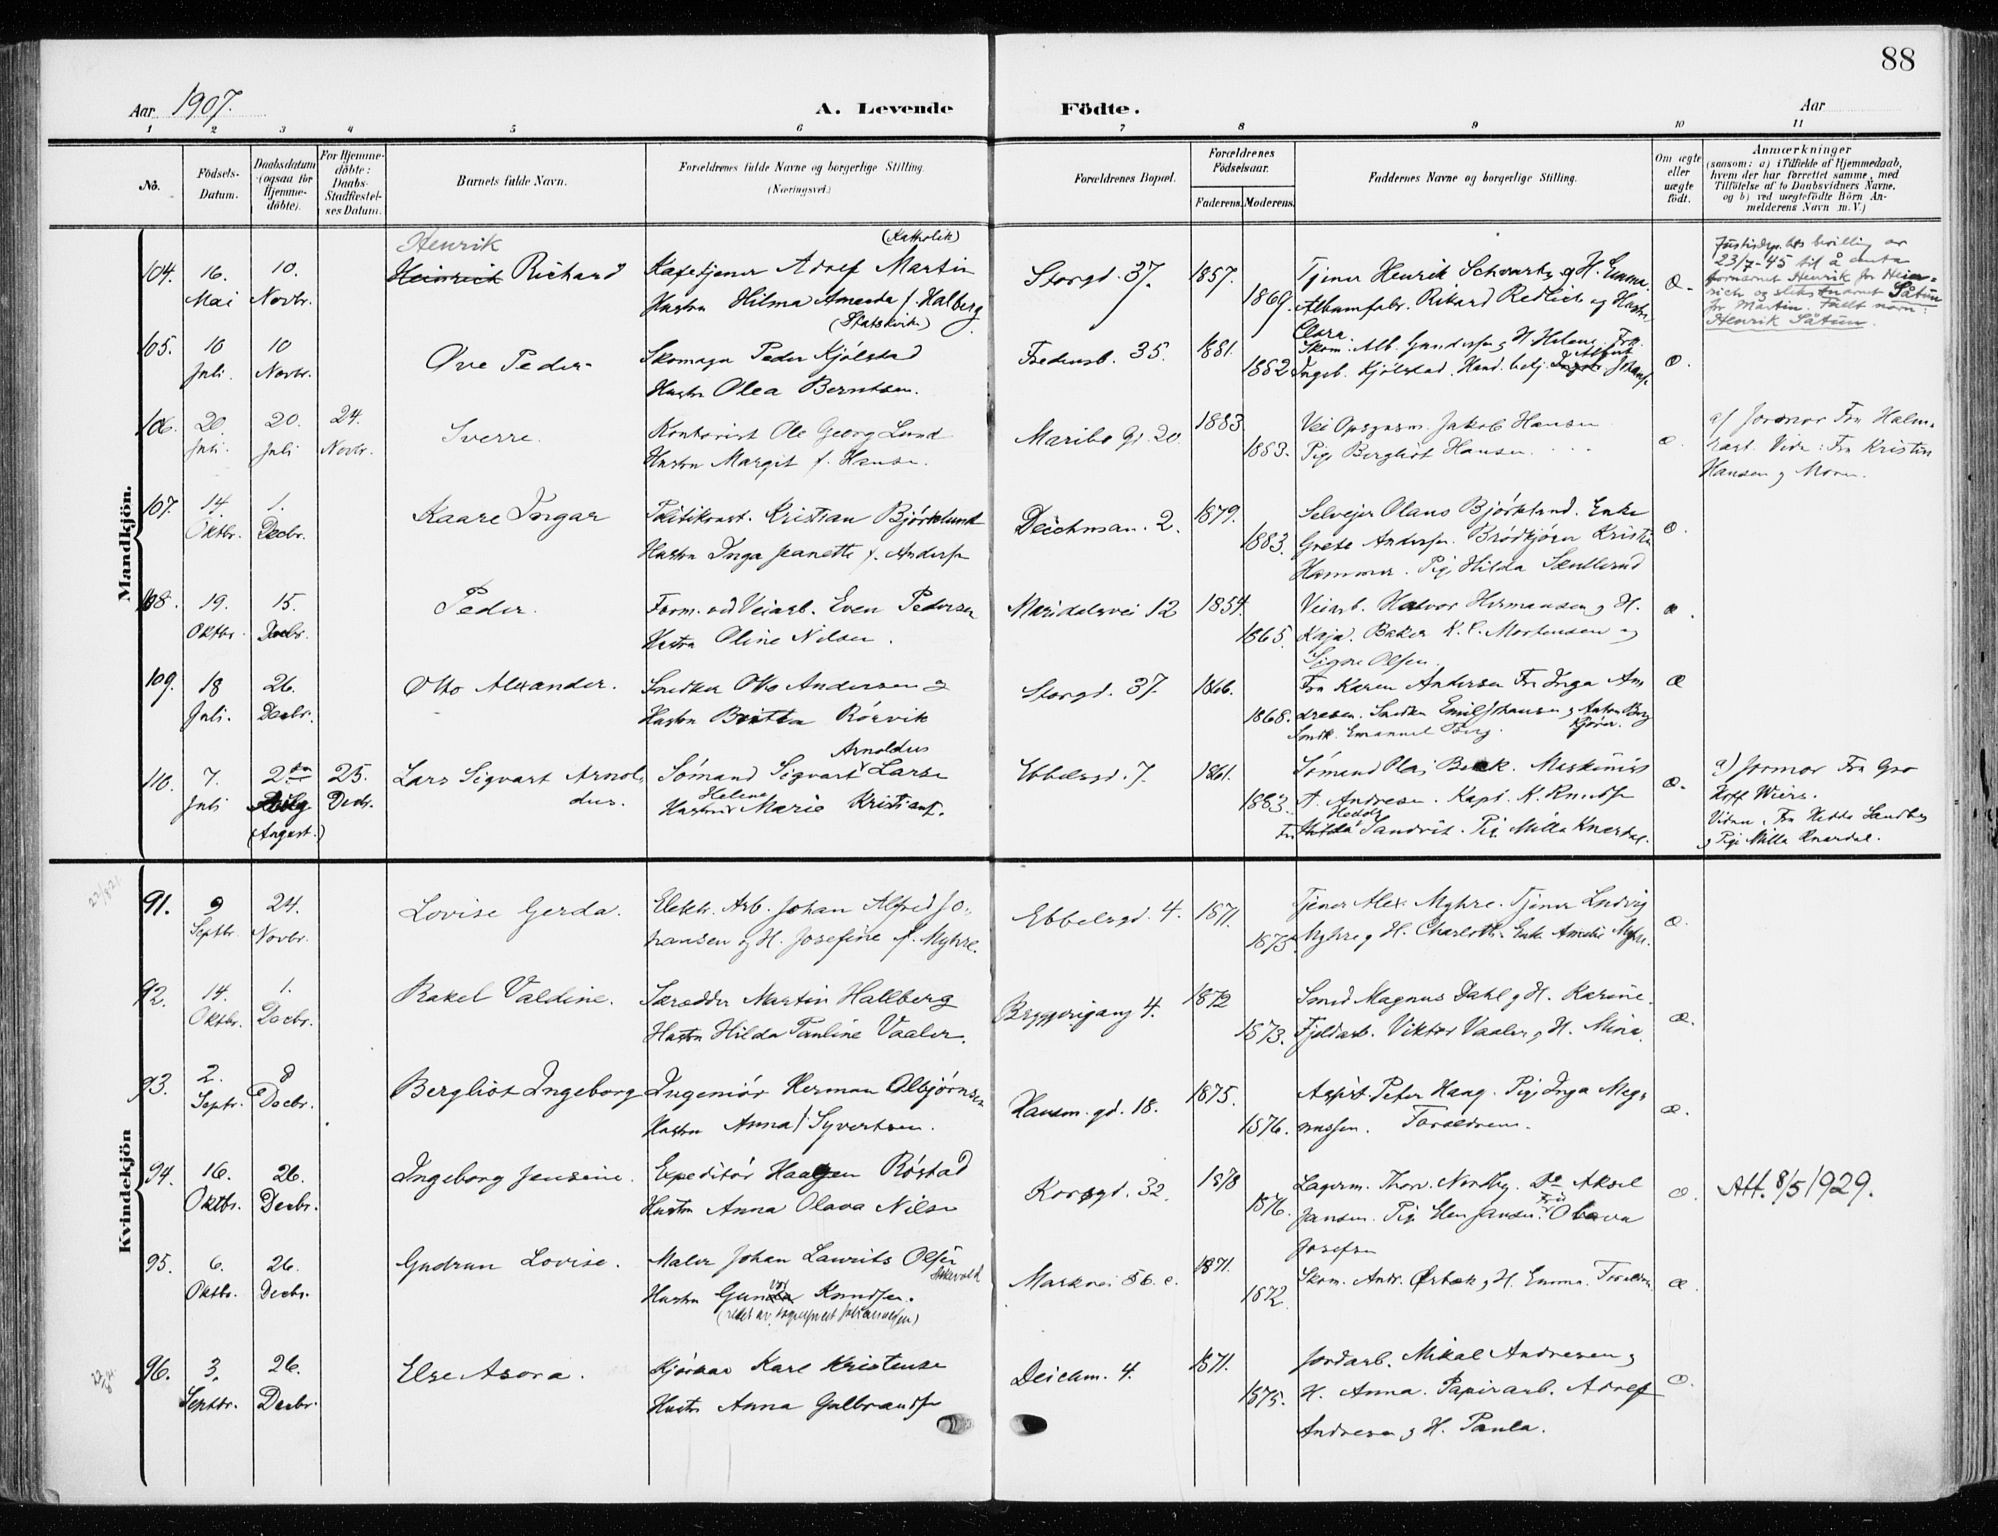 88
Aar 1907.
A. Levende Födte.
Aar
1 2 3 4 5 6 7 8 9 10 11
No.
Födsels-Datum.
Daabsdatum (ogsaa for Hjemme-döbte).
For Hjemme-döbte: Daabs-Stadfæstel-ses Datum.
Barnets fulde Navn.
Forældrenes fulde Navne og borgerlige Stilling.
(Næringsvei.)
Forældrenes Bopæl.
Forældrenes Födselsaar.
Faderens. Moderens.
Faddernes Navne og borgerlige Stilling.
Om ægte eller uægte födt.
Anmærkninger
(saasom: a) i Tilfælde af Hjemmedaab,
hvem der har forrettet samme, med
Tilföielse af to Daabsvidners Navne,
og b) ved uægtefödte Börn An-
melderens Navn m. V.)
Mandkjön.
104. 16. Mai 10. Novbr.
Henrik
Heinrich Richard
(Katholik)
Kafetjener Adolf Martin
Hustru Hilma Amanda f. Halberg
(Statskirk.)
Storgd. 37. 1857. 1869.
Tjener Henrik Schwartz og H. Emma.
Albumfabr. Rikard Redlich og Hustru
Clara.
æ.
Justisdep. bevillig av
23/7-45 til å anta
fornavnet Henrik for Hein-
rich og slektsnavnet Sätun
for Martin. Fullt navn:
Henrik Sätun.
105. 10 Juli. 10 Novbr.
Ove Peder
Skomager Peder Kjölstad
Hustru Olea Berntsen.
Fredensb. 35. 1881. 1882
Skom. Alb. Gundersen og H. Helene.
Ingeb. Kjölstad. Hand. betj. Albert Johans.
æ.
106. 20. Juli. 20. Juli 24. Novbr.
Sverre.
Kontorist Ole Georg Lund
Hustru Margit f. Hansen.
Maribo Gd. 20. 1883. 1883.
Vei Opsynsm. Jakob Hansen
Pige Bergliot Hansen.
æ.
af Jormor Fru Halm-
rast. Vidn: Fru Kristin
Hansen og Moren.
107. 14. Oktbr. 1. Decbr.
Kaare Ingar
Politikonst. Kristian Björklund
Hustru Inga Jeanette f. Andersen
Deichman. 2. 1879. 1883.
Selveier Olaus Björklund. Enke
Grete Andersen. Brödkjörer Kristian
Hammer. Pige Hilda
æ.
108. 19. Oktbr. 15. Decbr.
Peder.
Form. ved Veiarb. Even Pedersen
Hustru Oline Nilsen.
Maridalsvei 12 1854. 1865.
Veiarb. Halvor Hermansen og H.
Kaja. Baker K. C. Mortensen og
Signe Olsen.
æ.
109. 18 Juli. 26. Decbr.
Otto Alexander.
Snedker Otto Andersen og
Hustru Britta Rörvik
Storgd. 37. 1866. 1868.
Fru Karen Andersen Fru Inga An
dresen. Snedker Emil Johansen og Anton Berg
Kjörer.
Snedk. Emanuel Berg.
æ
110. 7. Juli 2. (August.) 25. Decbr.
Lars Sigvart Arnol-
dus.
Arnoldus
Sömand Sigvart Larsen
Helene
Hustru Marie Kristians.
Ebbelsgd. 7. 1861. 1883.
Sömand Olaj Beck. Maskinist
A. Andresen. Kapt. K. Knudsen
Hedda
Fru Hilda Sandvik. Pige Milla Knærdal.
æ.
a) Jormor Fru Gro
Hoff Wiers.
Vidner, Fru Hedda Sandberg
og Pige Milla Knærdal.
Kvindekjön
91. 9 Septbr. 24. Novbr.
Lovise Gerda.
Elektr. Arb. Johan Alfred Jo-
hansen og H. Josefine f. Myhre.
Ebbelsgd. 4. 1871. 1875
Tjener Alex. Myhre. Tjener Ludvig
Myhre og H. Charlotte. Enke Amalie Myhre.
æ.
92. 14. Oktbr. 1. Decbr.
Rakel Valdine.
Skrædder Martin Hallberg
Hustru Hilda Pauline Vaaler.
Bryggerigang 4. 1872 1873.
Smed Magnus Dahl og H. Karine.
Fjeldarb. Viktor Vaaler og H. Mina.
æ.
93. 2. Septr. 8 Decbr.
Bergliot Ingeborg
Ingeniör Herman Olbjörnsen
Hustru Anna f. Syvertsen.
Hausm. gd. 18. 1875. 1876.
Assist. Peter Haag. Pige Inga Mag-
nussen. Forældrene.
æ.
94. 16. Oktbr. 26. Decbr.
Ingeborg Jensine.
Expeditör Haagen Röstad
Hustru Anna Olava Nilsen
Korsgd. 32. 1878 1876.
Lagerm. Thorv. Nordby. Do Aksel
Jansen. Pige Elen Jansen. Fru Olava
Josefsen
æ.
Att. 8/5 1929.
95. 6. Oktbr. 26. Decbr.
Gudrun Lovise.
Maler Johan Laurits Olsen
Hustru Gunda Knudsen.
Markvei 56 c. 1871. 1872.
Skom. Andr. Ørbæk og H. Emma. Forældrene
æ.
96. 3. Septbr. 26. Decbr.
Else Asora.
Kjörer Karl Kristensen
Hustru Anna Gulbrandsen
Deichm. 4. 1871. 1875.
Jordarb. Mikal Andresen og
H. Anna. Papirarb. Adolf
Andresen og H. Paula.
æ.